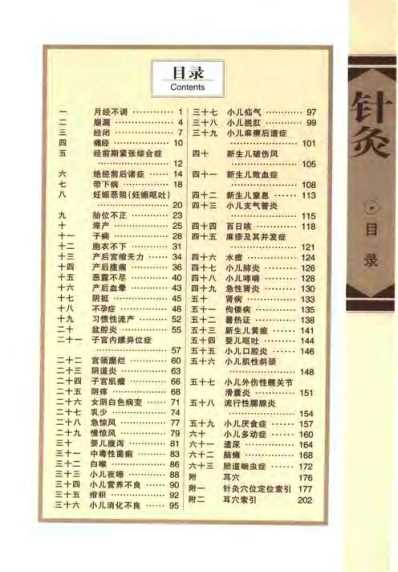 目录
Contents
一 月经不调 …………… 1
二 崩漏 …………… 4
三 经闭 …………… 7
四 痛经 …………… 10
五 经前期紧张综合症
…………… 12
六 绝经前后诸症 …… 14
七 带下病 …………… 18
八 妊娠恶阻(妊娠呕吐)
…………… 20
九 胎位不正 …………… 23
十 滞产 …………… 25
十一 子痫 …………… 28
十二 胞衣不下 …………… 31
十三 产后宫缩无力 …… 34
十四 产后腹痛 …………… 36
十五 恶露不尽 …………… 40
十六 产后血晕 …………… 43
十七 阴挺 …………… 45
十八 不孕症 …………… 48
十九 习惯性流产 …… 52
二十 盆腔炎 …………… 55
二十一 子宫内膜异位症
…………… 57
二十二 宫颈糜烂 …………… 60
二十三 阴道炎 …………… 63
二十四 子宫肌瘤 …………… 66
二十五 阴痒 …………… 68
二十六 女阴白色病变 …… 71
二十七 乳少 …………… 74
二十八 急惊风 …………… 77
二十九 慢惊风 …………… 79
三十 婴儿腹泻 …………… 81
三十一 中毒性菌痢 …… 83
三十二 白喉 …………… 86
三十三 小儿夜啼 …………… 88
三十四 小儿营养不良 …… 90
三十五 疳积 …………… 92
三十六 小儿消化不良 …… 95
三十七 小儿疝气 …………… 97
三十八 小儿脱肛 …………… 99
三十九 小儿麻痹后遗症
…………… 101
四十 新生儿破伤风
…………… 105
四十一 新生儿败血症
…………… 108
四十二 新生儿窒息 …… 113
四十三 小儿支气管炎
…………… 115
四十四 百日咳 …………… 118
四十五 麻疹及其并发症
…………… 121
四十六 水痘 …………… 124
四十七 小儿肺炎 …………… 126
四十八 小儿哮喘 …………… 128
四十九 急性肾炎 …………… 130
五十 肾病 …………… 133
五十一 佝偻病 …………… 135
五十二 暑热证 …………… 138
五十三 新生儿黄疸 …… 141
五十四 婴儿呕吐 …………… 144
五十五 小儿口腔炎 …… 146
五十六 小儿肌性斜颈
…………… 148
五十七 小儿外伤性髋关节
滑囊炎 …………… 151
五十八 流行性腮腺炎
…………… 154
五十九 小儿厌食症 …… 157
六十 小儿多动症 …… 160
六十一 遗尿 …………… 164
六十二 脑瘫 …………… 168
六十三 肠道蛔虫症 …… 172
附 耳穴 …………… 176
附一 针灸穴位定位索引 177
附二 耳穴索引 202
针灸
目录